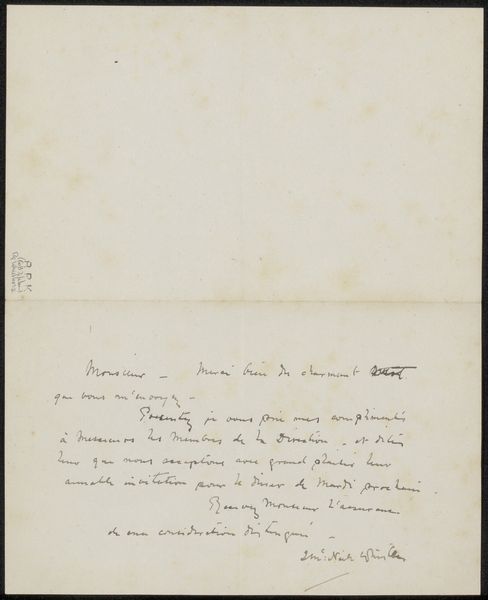 Monsieur - Merci bien du charmant
que vous m'envoyez -
Presentez je vous prie mes compliments
à Messieurs les Membres de la Direction - et dites
leur que nous acceptons avec grand plaisir leur
aimable invitation pour le diner de Mardi prochain.
Recevez Monsieur l'assurance
de ma consideration distinguée -
J Mc Neill Whistler